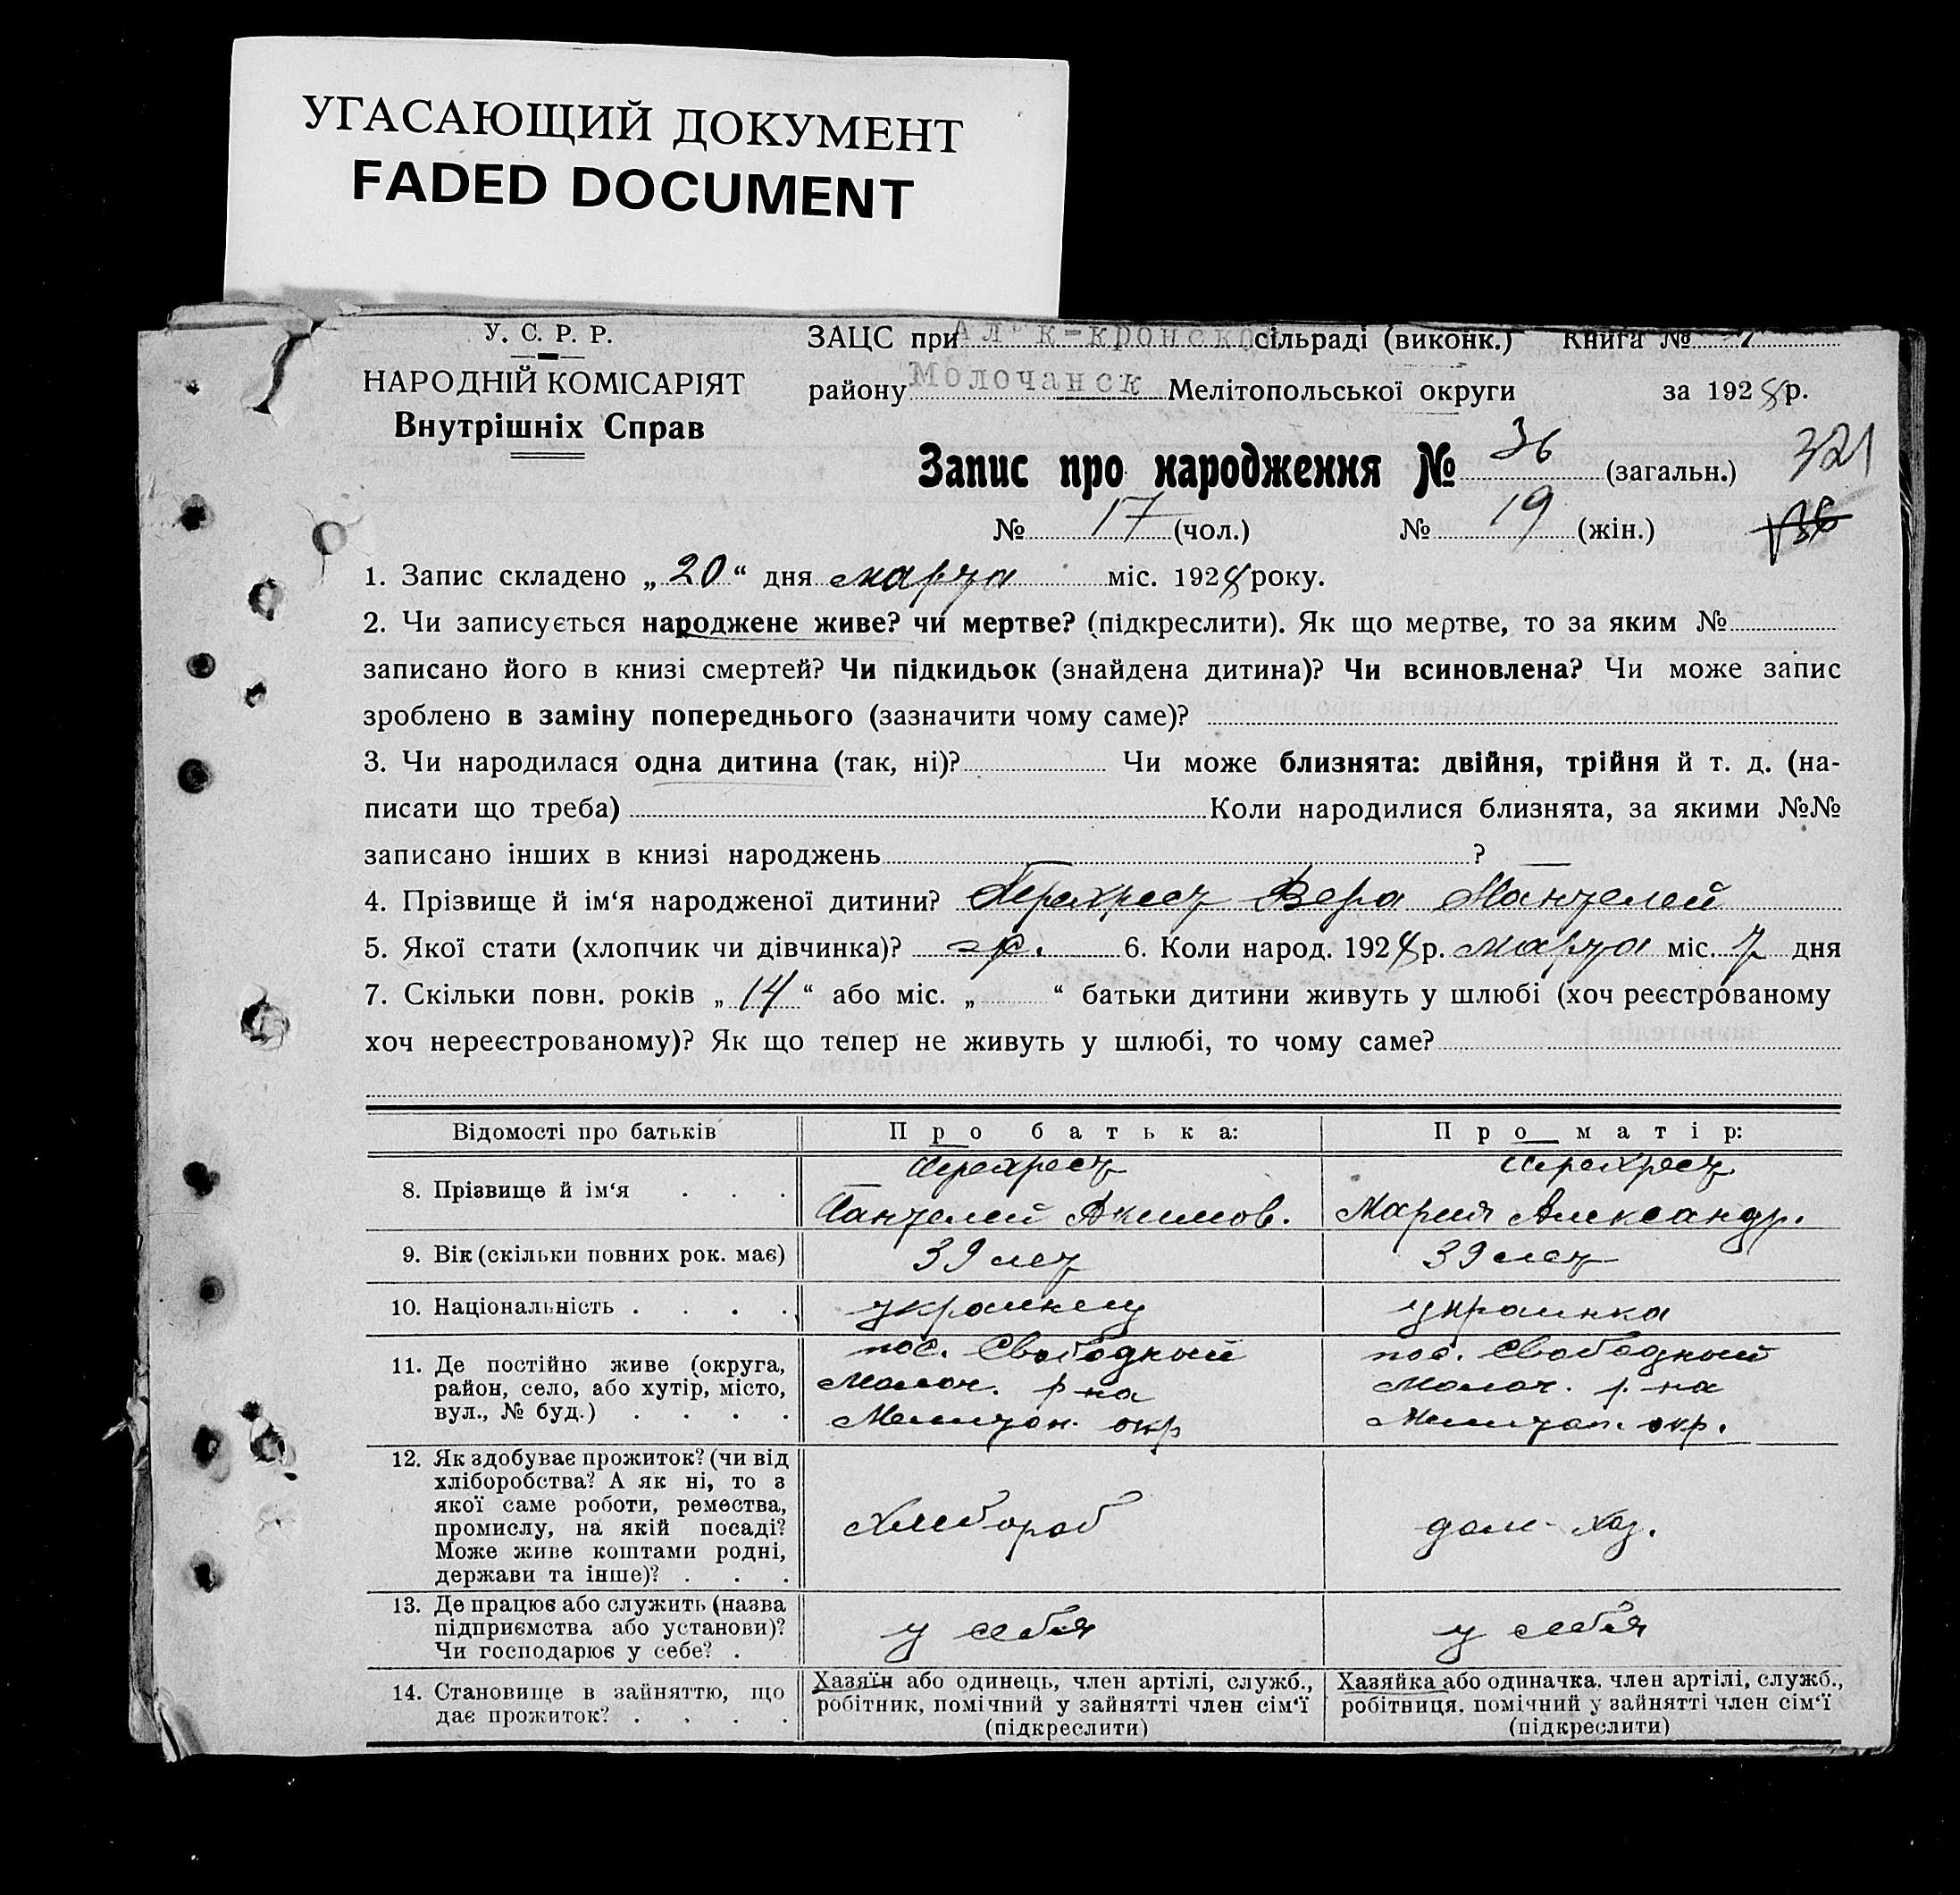 УГАСАЮЩИЙ ДОКУМЕНТ
FADED DOCUMENT
У. С. Р. Р.
НАРОДНІЙ КОМІСАРІЯТ
Внутрішніх Справ
ЗАЦС при Ал к-кронско сільраді (виконк.) Книга №
району Молочанск Мелітопольської округи за 1928 р.
Запис про народження № 36 (загальн.) 321
№ 17 (чол.) № 19 (жін.)
1. Запис складено „20“ дня марта міс. 1928 року.
2. Чи записується народжене живе? чи мертве? (підкреслити). Як що мертве, то за яким №
записано його в книзі смертей? Чи підкидьок (знайдена дитина)? Чи всиновлена? Чи може запис
зроблено в заміну попереднього (зазначити чому саме)?
3. Чи народилася одна дитина (так, ні)? Чи може близнята: двійня, трійня й т. д. (на-
писати що треба) Коли народилися близнята, за якими №№
записано інших в книзі народжень — ? —
4. Прізвище й ім‘я народженої дитини? Перехрест Вера Пантелей
5. Якої стати (хлопчик чи дівчинка)? 6. Коли народ. 1928 р. марта міс. 7 дня
7. Скільки повн. років „14“ або міс. „ “ батьки дитини живуть у шлюбі (хоч реєстрованому
хоч нереєстрованому)? Як що тепер не живуть у шлюбі, то чому саме?
Відомості про батьків Про батька: Про матір:
8. Прізвище й ім‘я . . .
Перехрест
Пантелей Акимов.
Перехрест
Мария Александр.
9. Вік (скільки повних рок. має) 39 лет 39 лет
10. Національність . . . . украинец украинка
11. Де постійно живе (округа,
район, село, або хутір, місто,
вул., № буд.) . . . .
пос. Свободный
Молоч. р-на
Мелитоп. окр
пос. Свободный
Молоч. р-на
Мелитоп. окр.
12. Як здобуває прожиток? (чи від
хліборобства? А як ні, то з
якої саме роботи, ремества,
промислу, на якій посаді?
Може живе коштами родні,
держави та інше)? . . .
хлебороб
дом-хоз.
13. Де працює або служить (назва
підприємства або установи)?
Чи господарює у себе? .
у себя
у себя
14. Становище в зайняттю, що
дає прожиток? . . . .
Хазяїн або одинець, член артілі, служб.,
робітник, помічний у зайнятті член сім‘ї
(підкреслити)
Хазяйка або одиначка, член артілі, служб.,
робітниця, помічний у зайнятті член сім‘ї
(підкреслити)